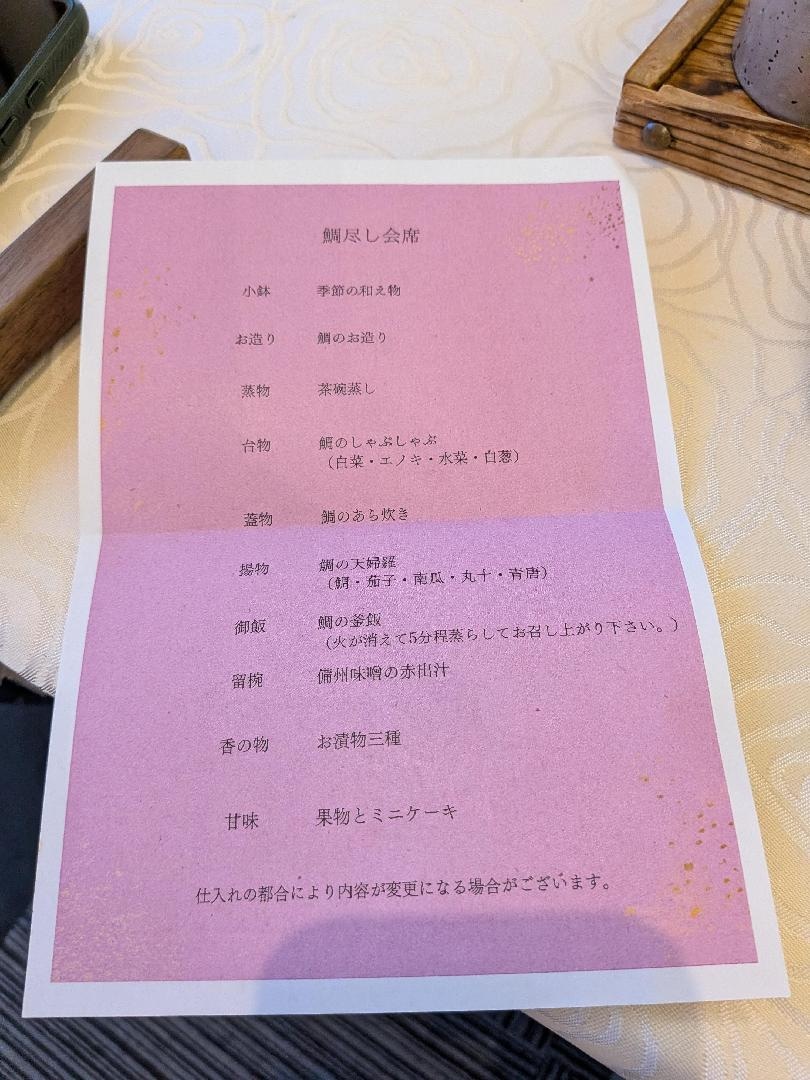 鯛尽し会席
小鉢 季節の和え物
お造り 鯛のお造り
蒸物 茶碗蒸し
台物 鯛のしゃぶしゃぶ
（白菜・エノキ・水菜・白葱）
蓋物 鯛のあら炊き
揚物 鯛の天婦羅
（鯛・茄子・南瓜・丸十・青唐）
御飯 鯛の釜飯
（火が消えて5分程蒸らしてお召し上がり下さい。）
留椀 備州味噌の赤出汁
香の物 お漬物三種
甘味 果物とミニケーキ
仕入れの都合により内容が変更になる場合がございます。